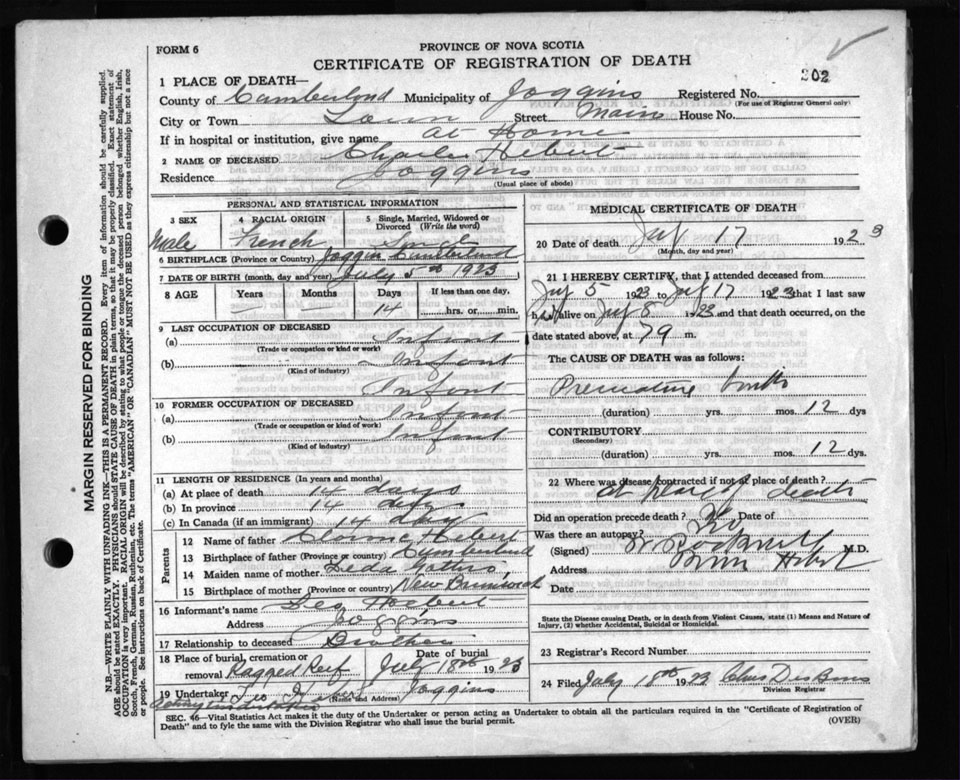 FORM 6
PROVINCE OF NOVA SCOTIA
CERTIFICATE OF REGISTRATION OF DEATH
202
1 PLACE OF DEATH—
County of Cumberland Municipality of Joggins Registered No.
(For use of Registrar General only)
City or Town Town Street Main House No.
If in hospital or institution, give name at Home
2 NAME OF DECEASED Charles Hebert
Residence Joggins
(Usual place of abode)
PERSONAL AND STATISTICAL INFORMATION
3 SEX 4 RACIAL ORIGIN 5 Single, Married, Widowed or Divorced (Write the word)
Male French Single
6 BIRTHPLACE (Province or Country) Joggins Cumberland
7 DATE OF BIRTH (month, day and year) July 5th 1923
8 AGE Years Months Days If less than one day,
14 hrs. or min.
9 LAST OCCUPATION OF DECEASED
(a) Infant
(Trade or occupation or kind or work)
(b) Infant
(Kind of industry)
Infant
10 FORMER OCCUPATION OF DECEASED
(a) Infant
(Trade or occupation or kind of work)
(b) Infant
(Kind of industry)
11 LENGTH OF RESIDENCE (In years and months)
(a) At place of death 14 days
(b) In province 14 days
(c) In Canada (if an immigrant) 14 days
Parents
12 Name of father Hebert
13 Birthplace of father (Province or Country) Cumberland
14 Maiden name of mother
15 Birthplace of mother (Province or country) New Brunswick
16 Informant's name Leo Hebert
Address Joggins
17 Relationship to deceased Brother
18 Place of burial, cremation or removal Ragged Reef Date of burial July 18th 1923
19 Undertaker Leo Hebert (Name and Address) Joggins
acting undertaker
MEDICAL CERTIFICATE OF DEATH
20 Date of death July 17 1923
(Month, day and year)
21 I HEREBY CERTIFY, that I attended deceased from
July 5 1923 to July 17 1923 that I last saw
h alive on July 8 1923 and that death occurred, on the
date stated above, at m.
The CAUSE OF DEATH was as follows:
Premature birth
(duration) yrs. mos. 12 dys
CONTRIBUTORY
(Secondary)
(duration) yrs. mos. 12 dys.
22 Where was disease contracted if not at place of death?
at place of death
Did an operation precede death? No Date of
Was there an autopsy?
(Signed) W. Rockwell M.D.
Address River Hebert
Date
State the Disease causing Death, or in death from Violent Causes, state (1) Means and Nature of Injury, (2) whether Accidental, Suicidal or Homicidal.
23 Registrar's Record Number
24 Filed July 18th 1923 Chas DesBrres
Division Registrar
SEC. 46—Vital Statistics Act makes it the duty of the Undertaker or person acting as Undertaker to obtain all the particulars required in the "Certificate of Registration of
Death" and to fyle the same with the Division Registrar who shall issue the burial permit.
(OVER)
MARGIN RESERVED FOR BINDING
N.B.—WRITE PLAINLY WITH UNFADING INK—THIS IS A PERMANENT RECORD. Every item of information should be carefully supplied.
AGE should be stated EXACTLY. PHYSICIANS should STATE CAUSE OF DEATH in plain terms, so that it may be properly classified. Exact statement of
OCCUPATION is very important. RACIAL ORIGIN will be described by stating to what people or tongue the deceased person belonged whether English, Irish,
Scotch, French, German, Russian, Ruthenian, etc. The terms "AMERICAN" OR "CANADIAN" MUST NOT BE USED as they express citizenship but not a race
or people. See instructions on back of Certificate.